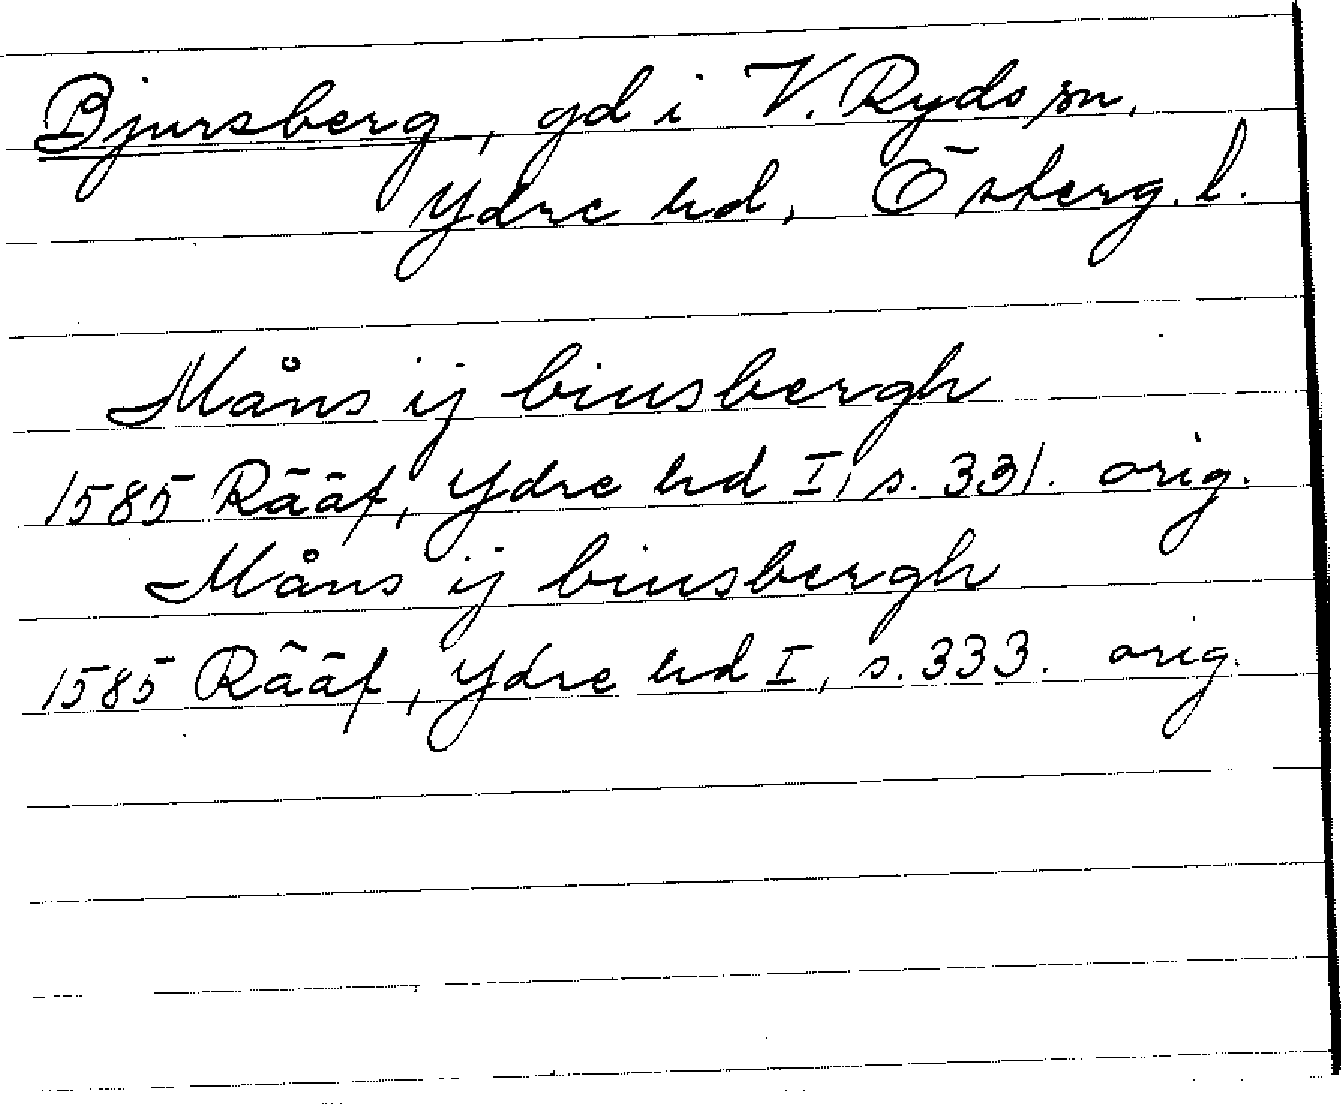 Bjursberg, gd i V. Ryds sn,
Ydre hd, Österg. l.
Måns ij biusbergh
1585 Rääf, Ydre hd I, s. 331. orig.
Måns ij biusbergh
1585 Rääf, Ydre hd I, s. 333. orig.